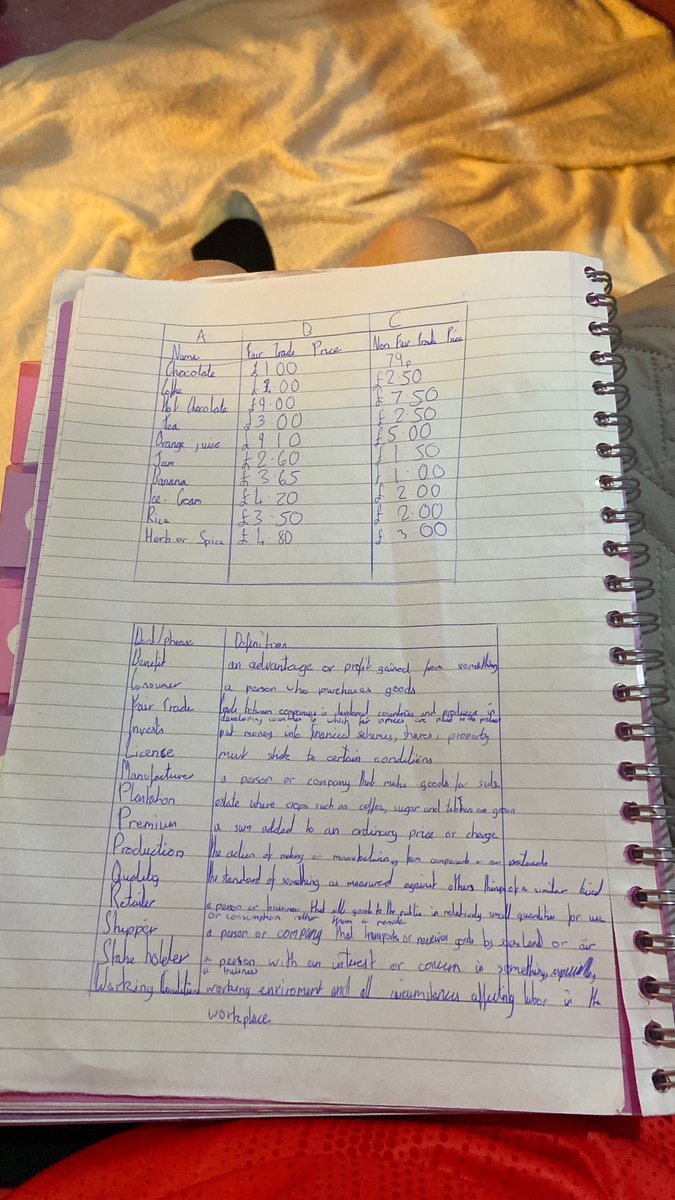 A B C
Name Fair Trade Price Non Fair Trade Price
Chocolate £1.00 79p
Coffe £3.00 £2.50
Hot Chocolate £9.00 £7.50
Tea £3.00 £2.50
Orange juice £9.10 £5.00
Jam £2.60 £1.50
Banana £3.65 £1.00
Ice-Cream £4.20 £2.00
Rice £3.50 £2.00
Herb or Spice £4.80 £3.00
Word/phrase Definition
Benefit an advantage or profit gained from something
Consumer a person who purchases goods
Fair Trade trade between companies in developed countries and producers in
developing countries in which fair prices are paid to the
Invests put money into financial schemes, shares, property
License must stick to certain conditions
Manufacturer a person or company that make goods for sale
Plantation estate where crops such as coffee, sugar and are grown
Premium a sum added to an ordinary price or charge
Production the action of making or manufacturing from components or raw materials
Quality the standard of something as measured against others things of a similar kind
Retailer a person or business that sells goods to the public in relatively small quantities for use
or consumption rather than a resale
Shipper a person or company that transports or receives goods by sea, land or air
Stake holder a person with an interest or concern in something, especially
a business
Working Conditions working enviroment and all circumstances affecting labor in the
workplace